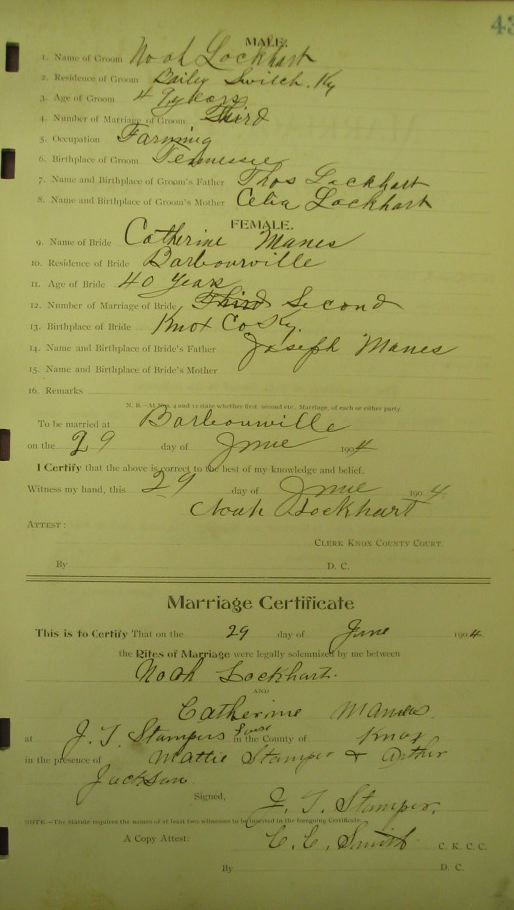 43
MALE.
1. Name of Groom Noah Lockhart
2. Residence of Groom Baily Switch, Ky
3. Age of Groom 49 years
4. Number of Marriage of Groom Third
5. Occupation Farming
6. Birthplace of Groom Tennessee
7. Name and Birthplace of Groom's Father Thos Lockhart
8. Name and Birthplace of Groom's Mother Celia Lockhart
FEMALE.
9. Name of Bride Catherine Manes
10. Residence of Bride Barbourville
11. Age of Bride 40 Years
12. Number of Marriage of Bride Third Second
13. Birthplace of Bride Knox Co Ky.
14. Name and Birthplace of Bride's Father Joseph Manes
15. Name and Birthplace of Bride's Mother
16. Remarks
N. B.—At Nos. 4 and 12 state whether first, second etc. Marriage, of each or either party.
To be married at Barbourville
on the 29 day of June 1904
I Certify that the above is correct to the best of my knowledge and belief.
Witness my hand, this 29 day of June 1904
Noah Lockhart
ATTEST:
CLERK KNOX COUNTY COURT.
By D. C.
Marriage Certificate
This is to Certify That on the 29 day of June 1904
the Rites of Marriage were legally solemnized by me between
Noah Lockhart.
AND
Catherine Manes
at J. T. Stampers house in the County of Knox
in the presence of Mattie Stamper & Arther
Jackson
Signed, J. T. Stamper.
NOTE.—The Statute requires the names of at least two witnesses to be inserted in the foregoing Certificate.
A Copy Attest: C. C. Smith C. K. C. C.
By D. C.